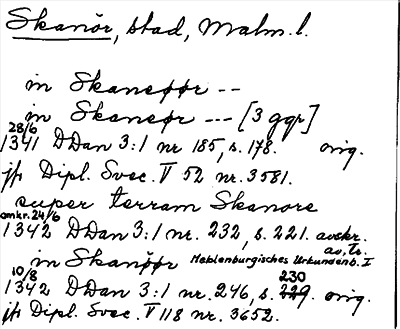 Skanör, stad, Malm. l.
in Skaneøør --
in Skaneør --- [3 ggr]
28/6
1341 DDan 3:1 nr 185, s. 178. orig.
jfr Dipl. Svec. V 52 nr. 3581.
super terram Skanore
omkr. 24/6
1342 DDan 3:1 nr. 232, s. 221. avskr.
av, tr.
in Skanøør Meklenburgisches Urkundenb. I
10/8 230
1342 DDan 3:1 nr. 246, s. 229. orig.
jfr Dipl. Svec. V 118 nr. 3652.